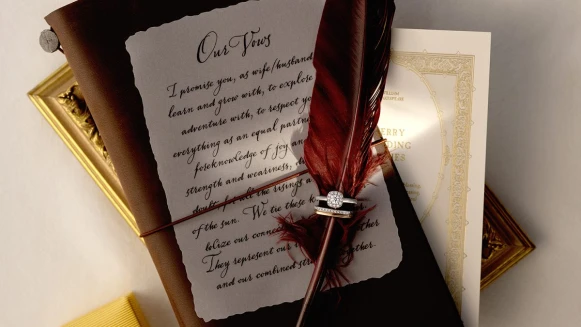 Our Vows
I promise you, as wife/husband
learn and grow with, to explore
adventure with, to respect yo
everything as an equal partn
foseknowledge of joy an
strength and weariness, d
doubt for all the risings a
of the sun. We tie these k
bolize our conne
They represent our
and our combined st
ther.
ERRY
DING
ES